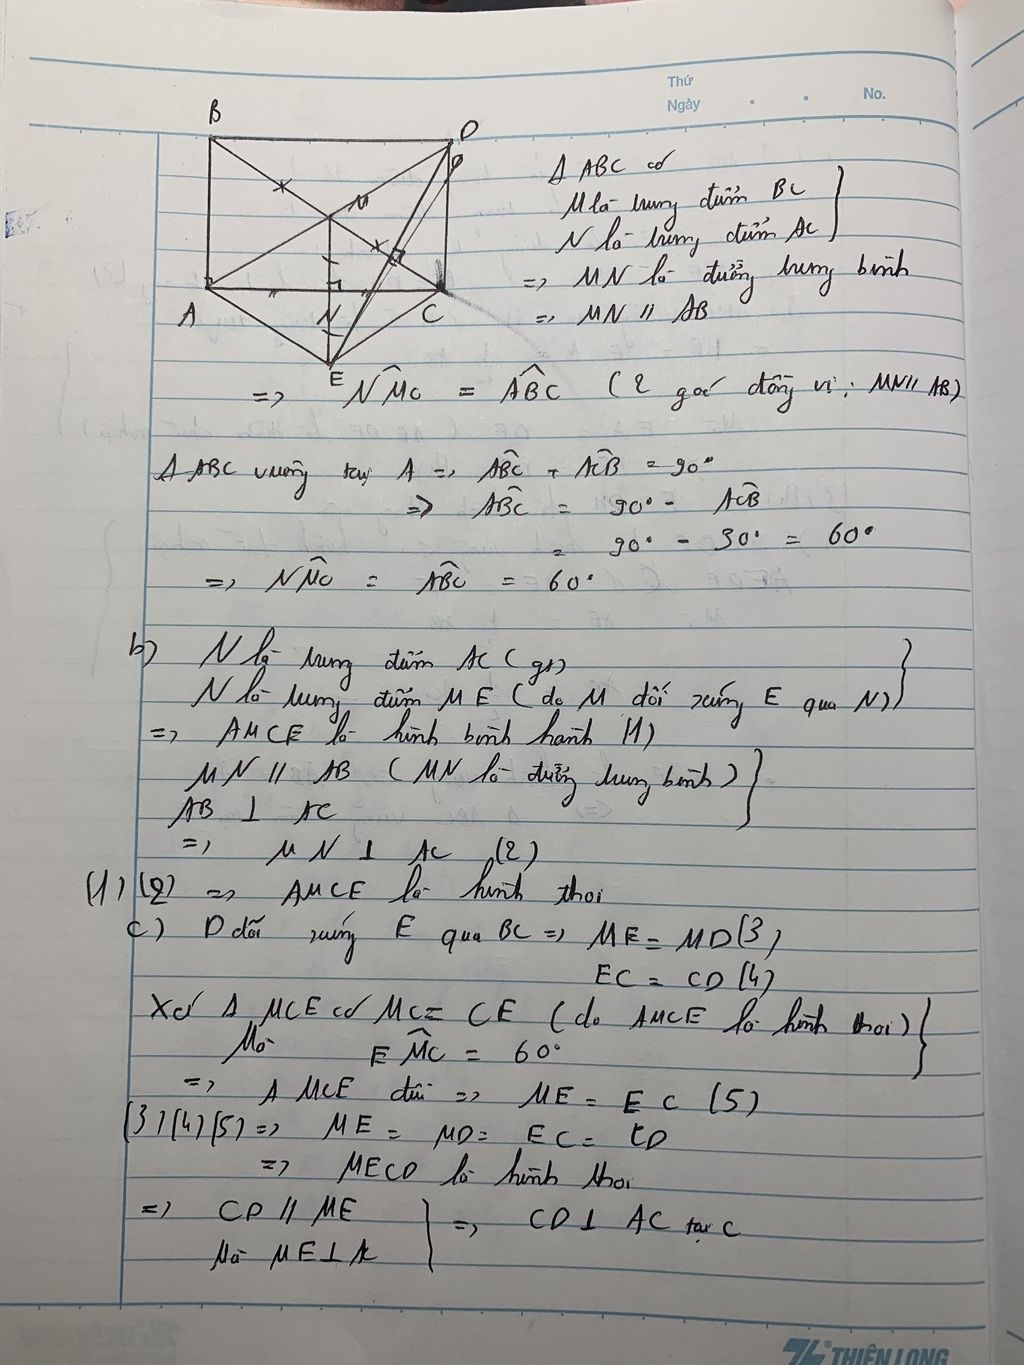 Thứ
Ngày . . No.
B
D
M
A
N
C
E
Δ ABC có
M là trung điểm BC
N là trung điểm AC
=> MN là đường trung bình
=> MN // AB
=> NMC = ABC (2 góc đồng vị; MN // AB)
Δ ABC vuông tại A => ABC + ACB = 90°
=> ABC = 90° - ACB
= 90° - 30° = 60°
=> NMC = ABC = 60°
b) N là trung điểm AC (gt)
N là trung điểm ME (do M đối xứng E qua N)
=> AMCE là hình bình hành (1)
MN // AB (MN là đường trung bình)
AB ⊥ AC
=> MN ⊥ AC (2)
(1) (2) => AMCE là hình thoi
c) D đối xứng E qua BC => ME = MD (3)
EC = CD (4)
Xét Δ MCE có MC = CE (do AMCE là hình thoi)
Mà EMC = 60°
=> Δ MCE đều => ME = EC (5)
(3) (4) (5) => ME = MD = EC = CD
=> MECD là hình thoi
=> CD // ME
Mà ME ⊥ AC
=> CD ⊥ AC tại C
THIÊN LONG